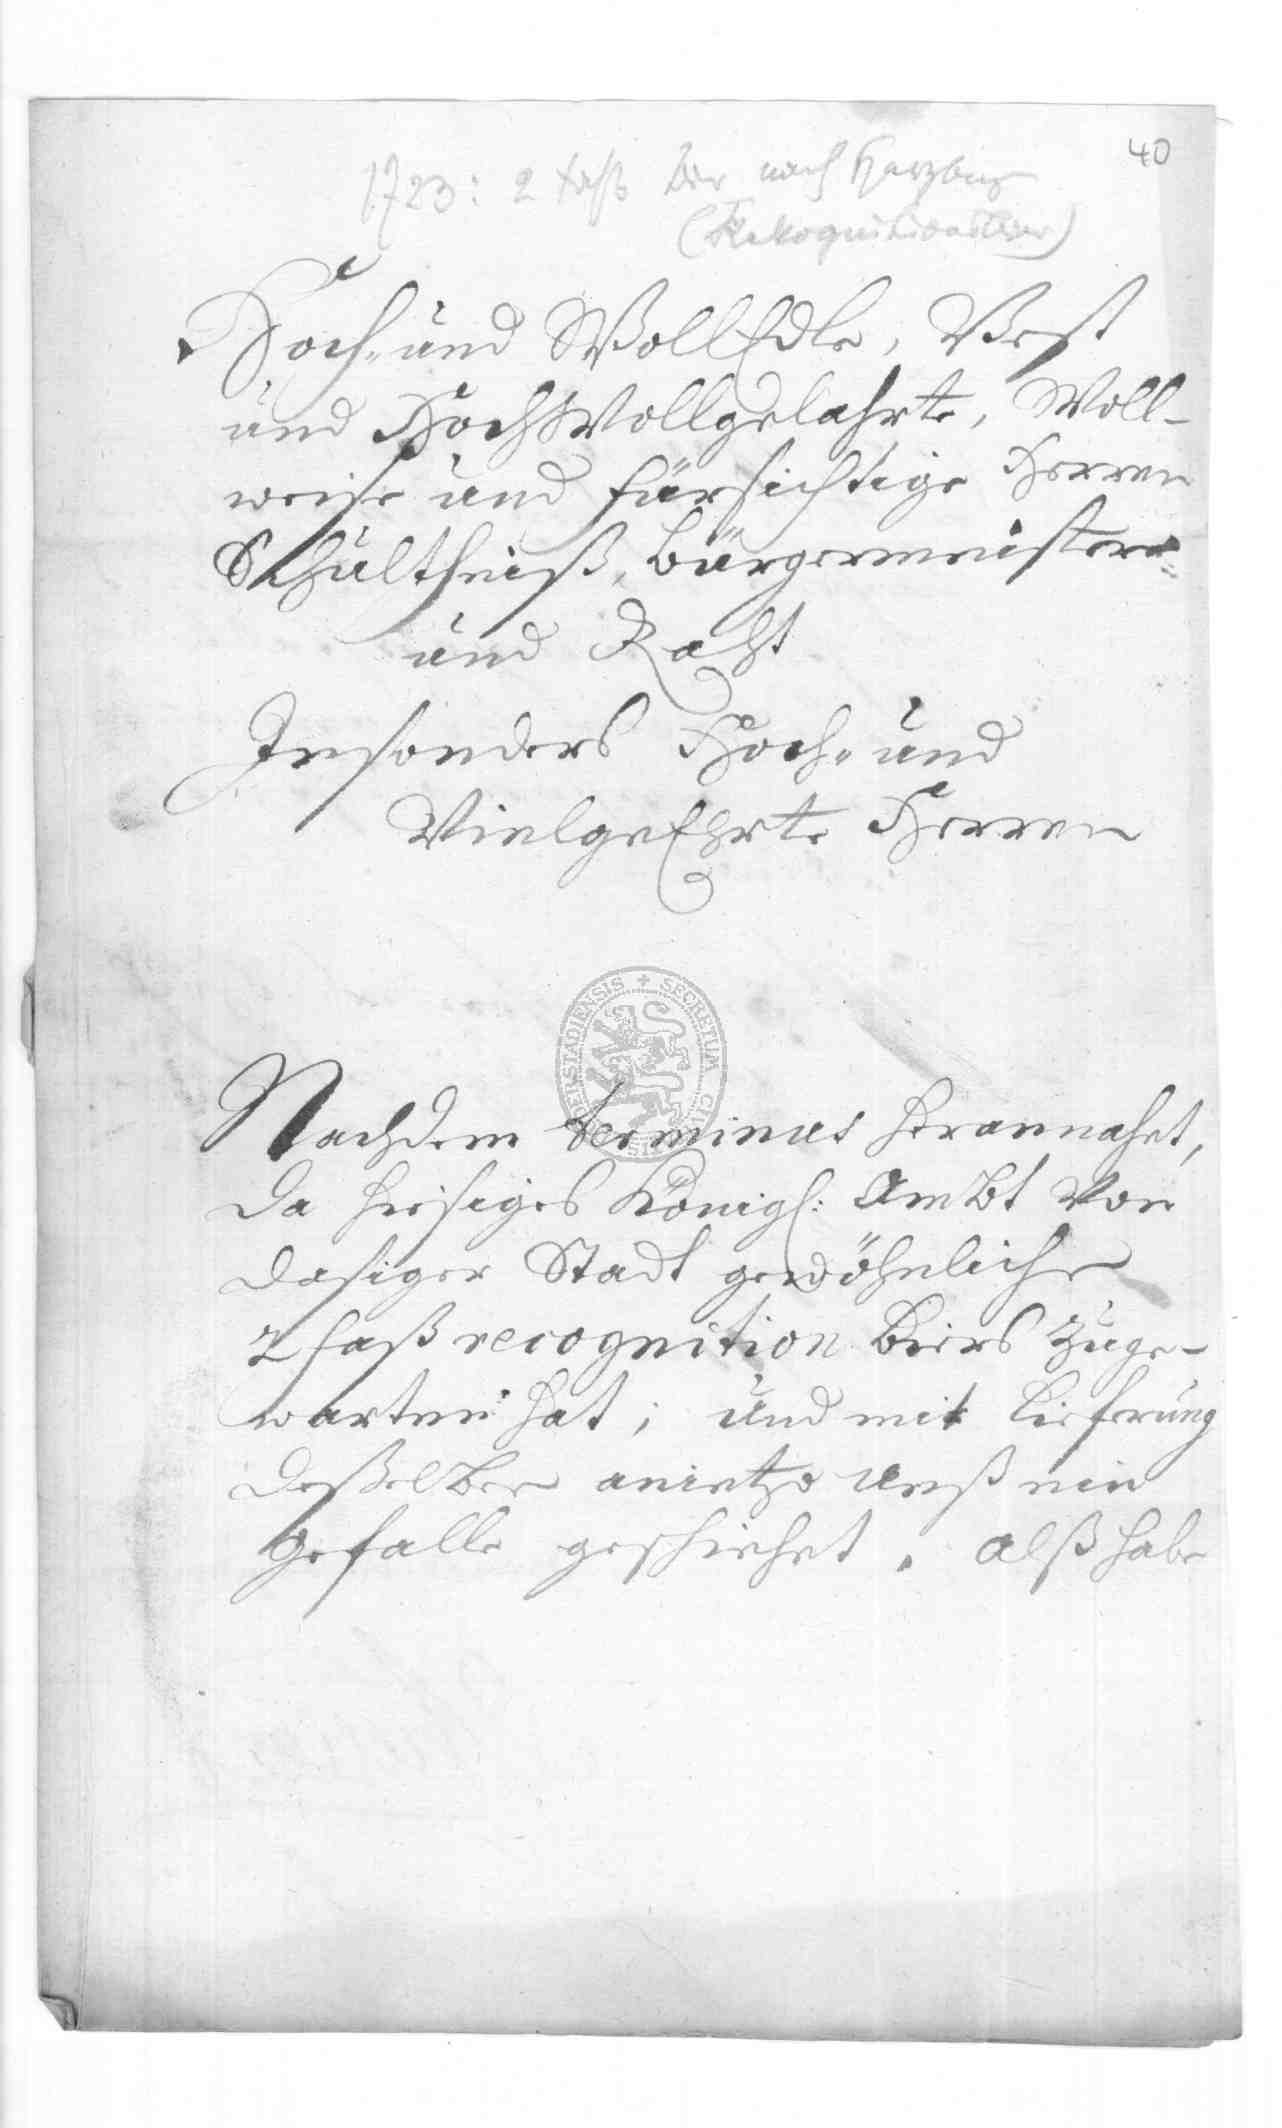 40
1723: 2 Faß Bier nach Herzberg
(Rekognitionsbier)
Hoch- und WollEdle, Vest
und HochWollgelahrte, Woll-
weise und fürsichtige Herren
Schultheiß, Bürgermeistere
und Raht
Insonders Hoch- und
VielgeEhrte Herren
SECRETUM CI DERSTADIENSIS
Nachdem terminus herannahet,
da hiesiges Königl: Ambt von
dasiger Stadt gewöhnliche
2 Faß recognition Biers zuge-
warten hat; und mit Lieferung
deßelben anietzo unß ein
gefalle geschiehet, alß habe